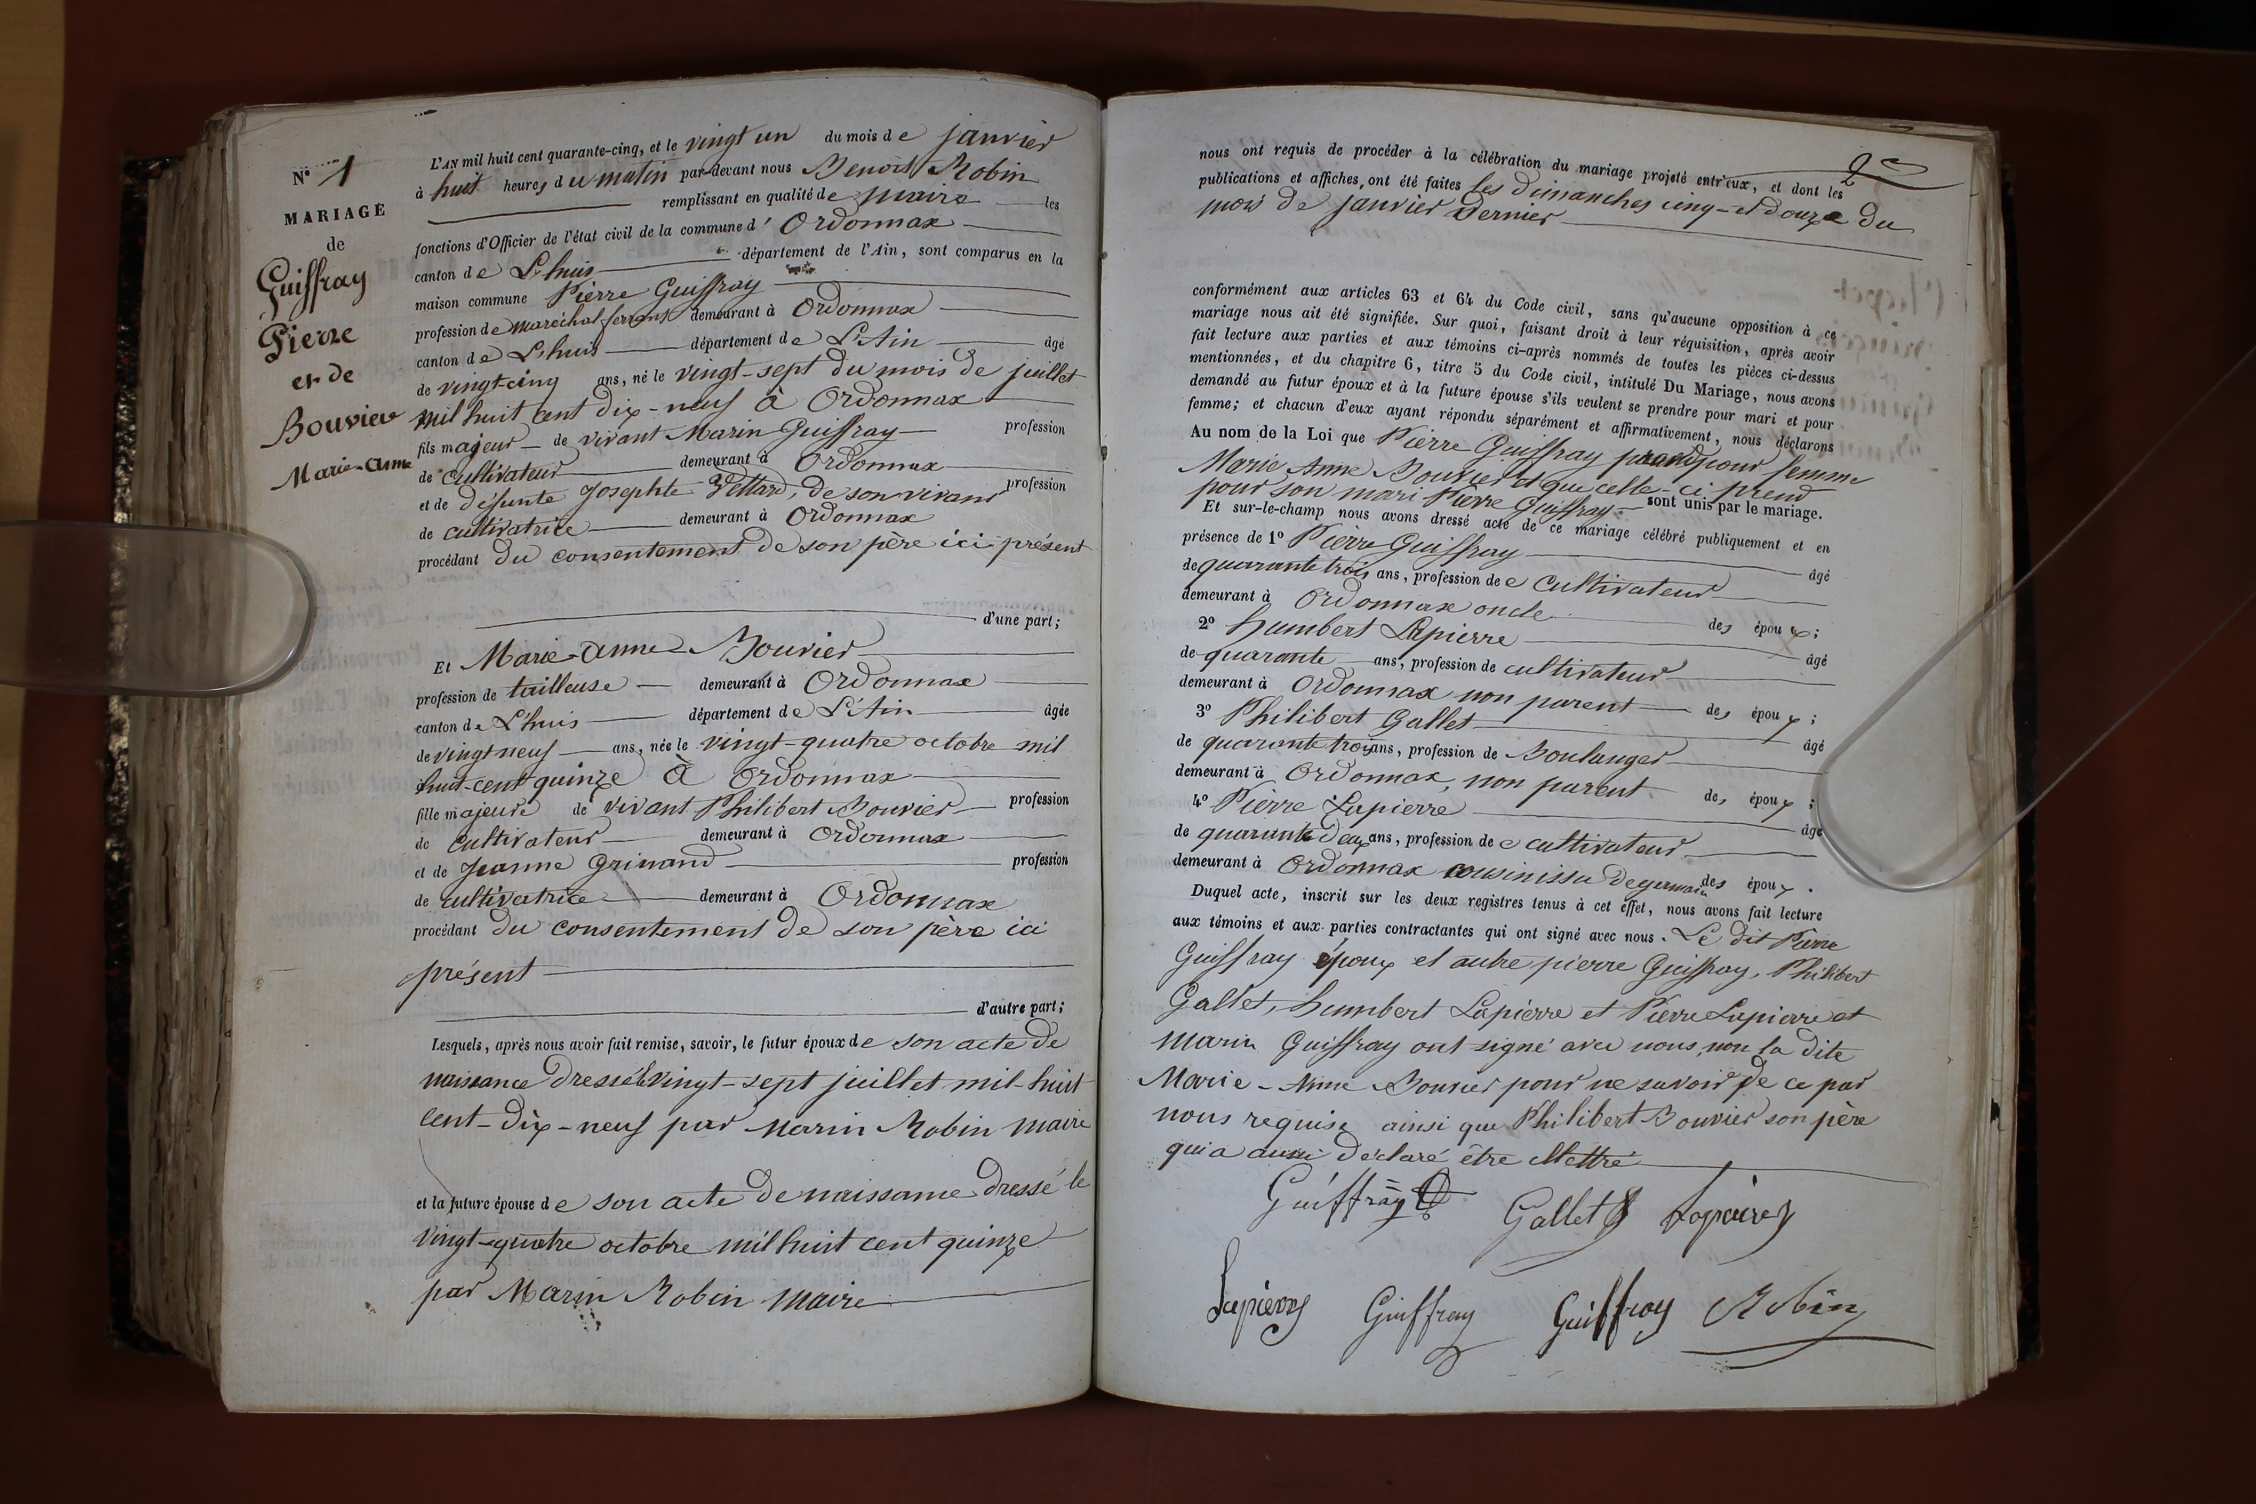 N° 1
MARIAGE
de
Guiffray
Pierre
et de
Bouvier
Marie-anne
L'AN mil huit cent quarante-cinq, et le vingt un du mois de janvier
à huit heures du matin par-devant nous Benoit Robin
remplissant en qualité de maire les
fonctions d'Officier de l'état civil de la commune d' Ordonnax
canton de L'huis département de l'Ain, sont comparus en la
maison commune Pierre Guiffray
profession de maréchal ferrant demeurant à Ordonnax
canton de L'huis département de L'Ain âgé
de vingt-cinq ans, né le vingt-sept du mois de juillet
mil huit cent dix-neuf à Ordonnax
fils majeur de vivant Marin Guiffray profession
de cultivateur demeurant à Ordonnax
et de défunte Josephte Vettard, de son vivant profession
de cultivatrice demeurant à Ordonnax
procédant du consentement de son père ici présent
d'une part;
Et Marie-Anne Bouvier
profession de tailleuse demeurant à Ordonnax
canton de L'huis département de L'Ain âgée
de vingt neuf ans, née le vingt-quatre octobre mil
huit-cent quinze à Ordonnax
fille majeure de vivant Philibert Bouvier profession
de cultivateur demeurant à Ordonnax
et de Jeanne Grinand profession
de cultivatrice demeurant à Ordonnax
procédant du consentement de son père ici
présent
d'autre part;
Lesquels, après nous avoir fait remise, savoir, le futur époux de son acte de
naissance dressé le vingt-sept juillet mil-huit
cent-dix-neuf par Marin Robin maire
et la future épouse de son acte de naissance dressé le
vingt-quatre octobre mil huit cent quinze
par Marin Robin maire
2
nous ont requis de procéder à la célébration du mariage projeté entr'eux, et dont les
publications et affiches, ont été faites les dimanches cinq-et douze du
mois de janvier dernier
conformément aux articles 63 et 64 du Code civil, sans qu'aucune opposition à ce
mariage nous ait été signifiée. Sur quoi, faisant droit à leur réquisition, après avoir
fait lecture aux parties et aux témoins ci-après nommés de toutes les pièces ci-dessus
mentionnées, et du chapitre 6, titre 5 du Code civil, intitulé Du Mariage, nous avons
demandé au futur époux et à la future épouse s'ils veulent se prendre pour mari et pour
femme; et chacun d'eux ayant répondu séparément et affirmativement, nous déclarons
Au nom de la Loi que Pierre Guiffray prend pour femme
Marie Anne Bouvier et que celle-ci prend
pour son mari Pierre Guiffray sont unis par le mariage.
Et sur-le-champ nous avons dressé acte de ce mariage célébré publiquement et en
présence de 1° Pierre Guiffray âgé
de quarante trois ans, profession de cultivateur
demeurant à Ordonnax oncle des époux;
2° humbert Lapierre âgé
de quarante ans, profession de cultivateur
demeurant à Ordonnax non parent des époux;
3° Philibert Gallet âgé
de quarante trois ans, profession de Boulanger
demeurant à Ordonnax, non parent des époux;
4° Pierre Lapierre âgé
de quarante deux ans, profession de cultivateur
demeurant à Ordonnax cousin issu de germain des époux.
Duquel acte, inscrit sur les deux registres tenus à cet effet, nous avons fait lecture
aux témoins et aux parties contractantes qui ont signé avec nous. Le dit Pierre
Guiffray époux et autre pierre Guiffray, Philibert
Gallet, humbert Lapierre et Pierre Lapierre et
Marin Guiffray ont signé avec nous, non la dite
Marie-Anne Bouvier pour ne savoir de ce par
nous requise ainsi que Philibert Bouvier son père
qui a aussi déclaré être illettré
Guiffray Gallet Lapierre
Lapierre Guiffray Guiffray Robin